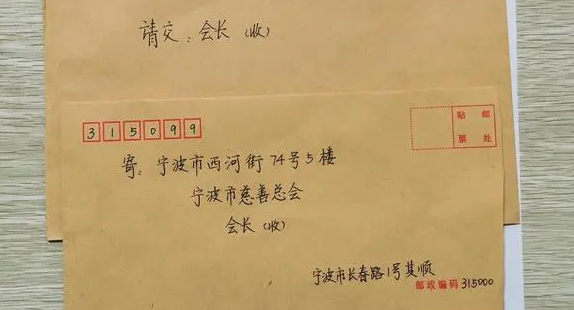 请交：会长（收）
315099
贴 邮
票 处
寄：宁波市西河街74号5楼
宁波市慈善总会
会长（收）
宁波市长春路1号其顺
邮政编码 315000